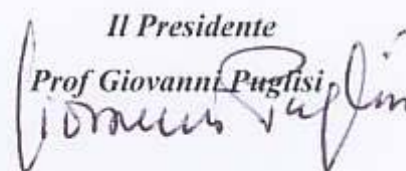 Il Presidente
Prof Giovanni Puglisi
Giovanni Puglisi